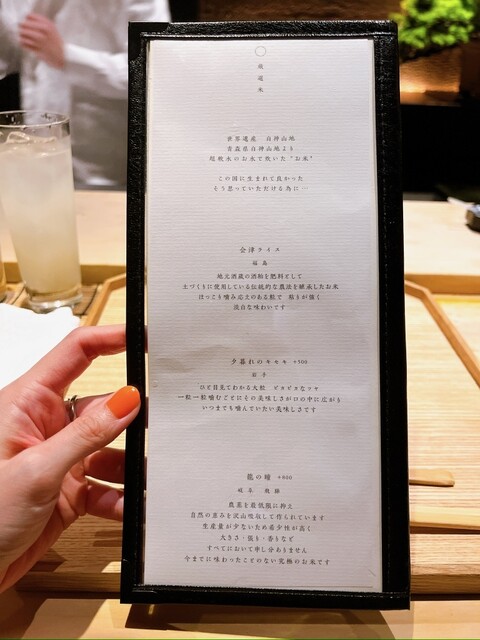 厳選米
世界遺産 白神山地
青森県白神山地より
超軟水のお水で炊いた"お米"
この国に生まれて良かった
そう思っていただける為に…
会津ライス
福島
地元酒蔵の酒粕を肥料として
土づくりに使用している伝統的な農法を継承したお米
ほっこり噛み応えのある粒で 粘りが強く
淡白な味わいです
夕暮れのキセキ +500
岩手
ひと目見てわかる大粒 ピカピカなツヤ
一粒一粒噛むごとにその美味しさが口の中に広がり
いつまでも噛んでいたい美味しさです
龍の瞳 +800
岐阜 飛騨
農薬を最低限に抑え
自然の恵みを沢山吸収して作られています
生産量が少ないため希少性が高く
大きさ・張り・香りなど
すべてにおいて申し分ありません
今までに味わったことのない究極のお米です